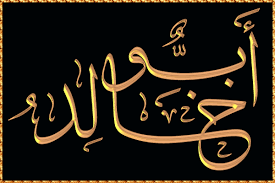 أبو
خالد